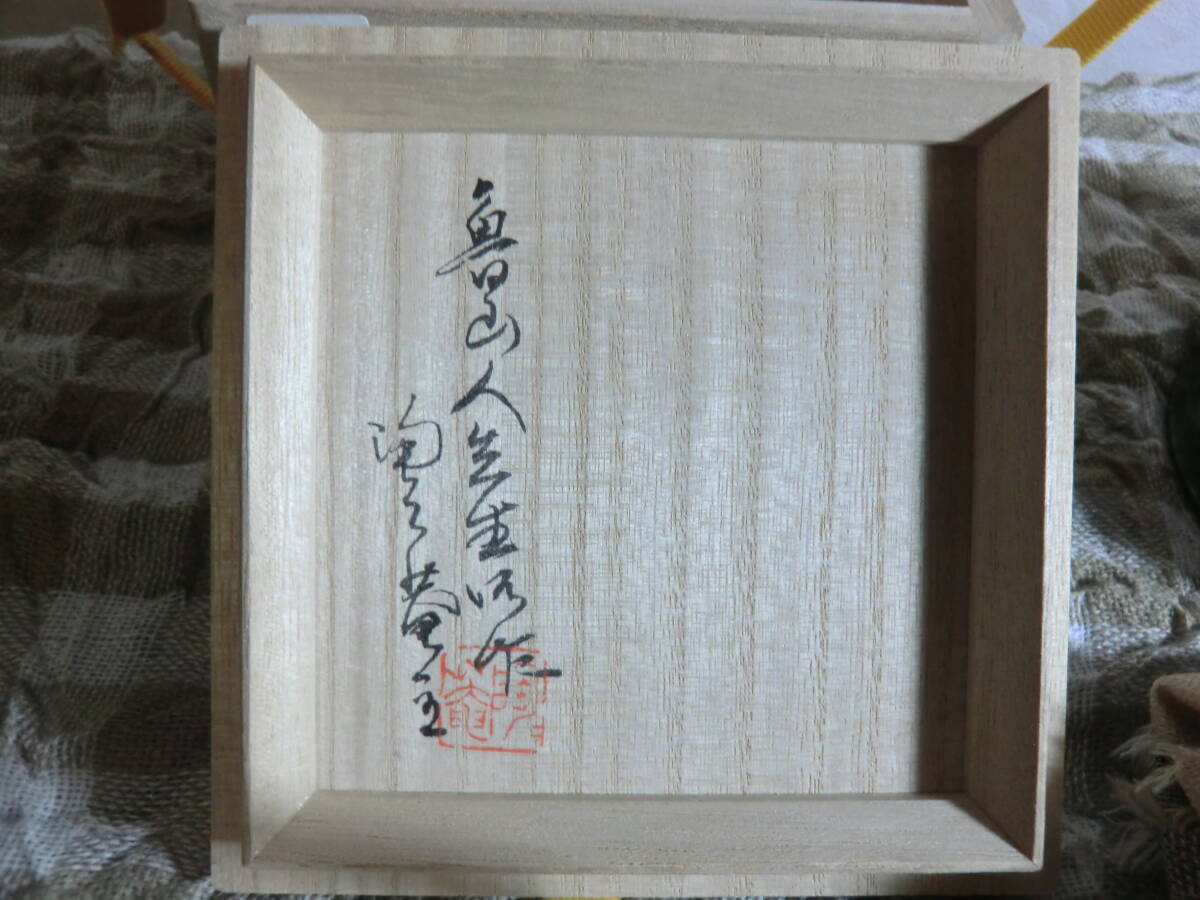 魯山人先生所作
陶々菴主